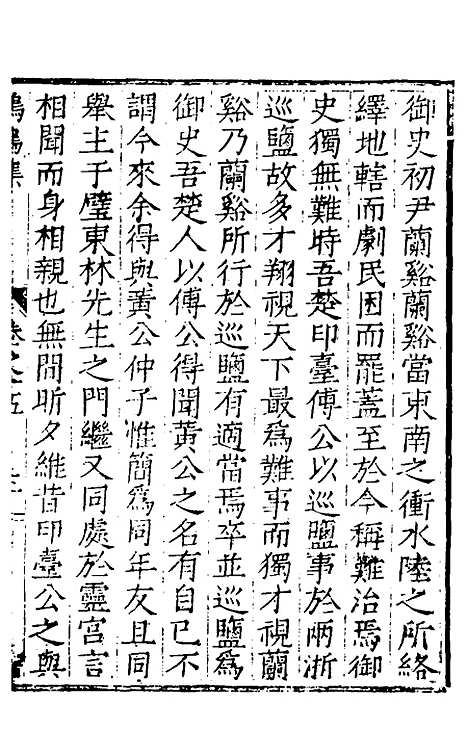 御史初尹蘭谿蘭谿當東南之衝水陸之所絡
繹地轄而劇民困而罷蓋至於今稱難治焉御
史獨無難時吾楚印臺傅公以巡鹽事於兩浙
巡鹽故多才翔視天下最為難事而獨才視蘭
谿乃蘭谿所行於巡鹽有適當焉卒並巡鹽為
御史吾楚人以傅公得聞黃公之名有自已不
謂今來余得與黃公仲子惟簡為同年友且同
舉主于璧東林先生之門繼又同處於靈宮言
相聞而身相親也無間昕夕維昔印臺公之與
集
卷之五